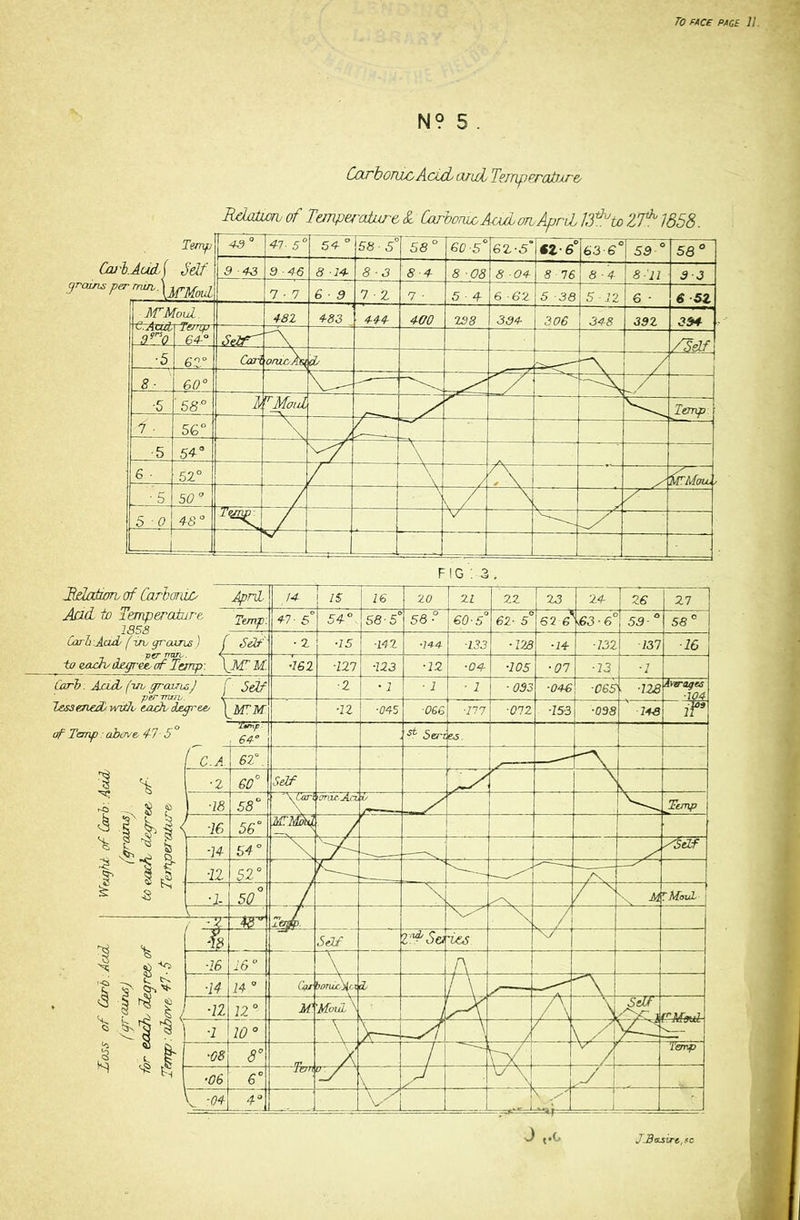 TO FACE PAGE 11.
Nº 5.
Carbonic Acid and Temperature
Relation of Temperature & Carbonic Acid on April 13th to 27th 1858.
Temp: 43° 47·5° 54° 58·5° 58° 60·5° 62·5° 62·6° 63·6° 59° 58°
Carb. Acid Self 9·43 9·46 8·14 8·3 8·4 8·08 8·04 8·76 8·4 8·11 9·3
grains per min. Mr Moul 7·7 6·9 7·2 7· 5·4 6·62 5·38 5·12 6· 6·52
Mr Moul 482 483 444 400 298 394 306 348 392 394
C. Acid Temp
9grs0 64° Self Self
·5 62° Carbonic Acid
8· 60°
·5 58° Mr Moul Temp:
7· 56°
·5 54°
6· 52° Mr Moul
·5 50°
5·0 48° Temp:
FIG: 3.
Relation of Carbonic April 14 15 16 20 21 22 23 24 26 27
Acid to Temperature Temp: 47·5° 54° 58·5° 58° 60·5° 62·5° 62·6° 63·6° 59° 58°
1858
Carb: Acid (in grains) Self ·2 ·15 ·142 ·144 ·133 ·128 ·14 ·132 ·137 ·16
per min.
to each degree of Temp: Mr M ·162 ·127 ·123 ·12 ·04 ·105 ·07 ·13 ·1
Carb. Acid (in grains) Self ·2 ·1 ·1 ·1 ·093 ·046 ·065 ·128 Averages ·104
per min.
lessened with each degree Mr M ·12 ·045 066 ·177 ·072 ·153 ·098 148
of Temp: above 47·5°
Temp: 64° 1st Series.
C.A. 62°.
·2 60° Self
·18 58° Carbonic Acid Temp
·16 56° Mr Moul
·14 54° Self
·12 52°
·1 50° Mr Moul
·2 48° Temp:
Weight of Carb: Acid
(grains)
to each degree of
Temperature
·18 Self 2nd Series
·16 16°
·14 14° Carbonic Acid
·12 12° Mr Moul Self
·1 10° Mr Moul
·08 8° Temp
·06 6° Temp
·04 4°
Loss of Carb. Acid
(grains)
for each degree of
Temp: above 47·5
J. Basire, sc